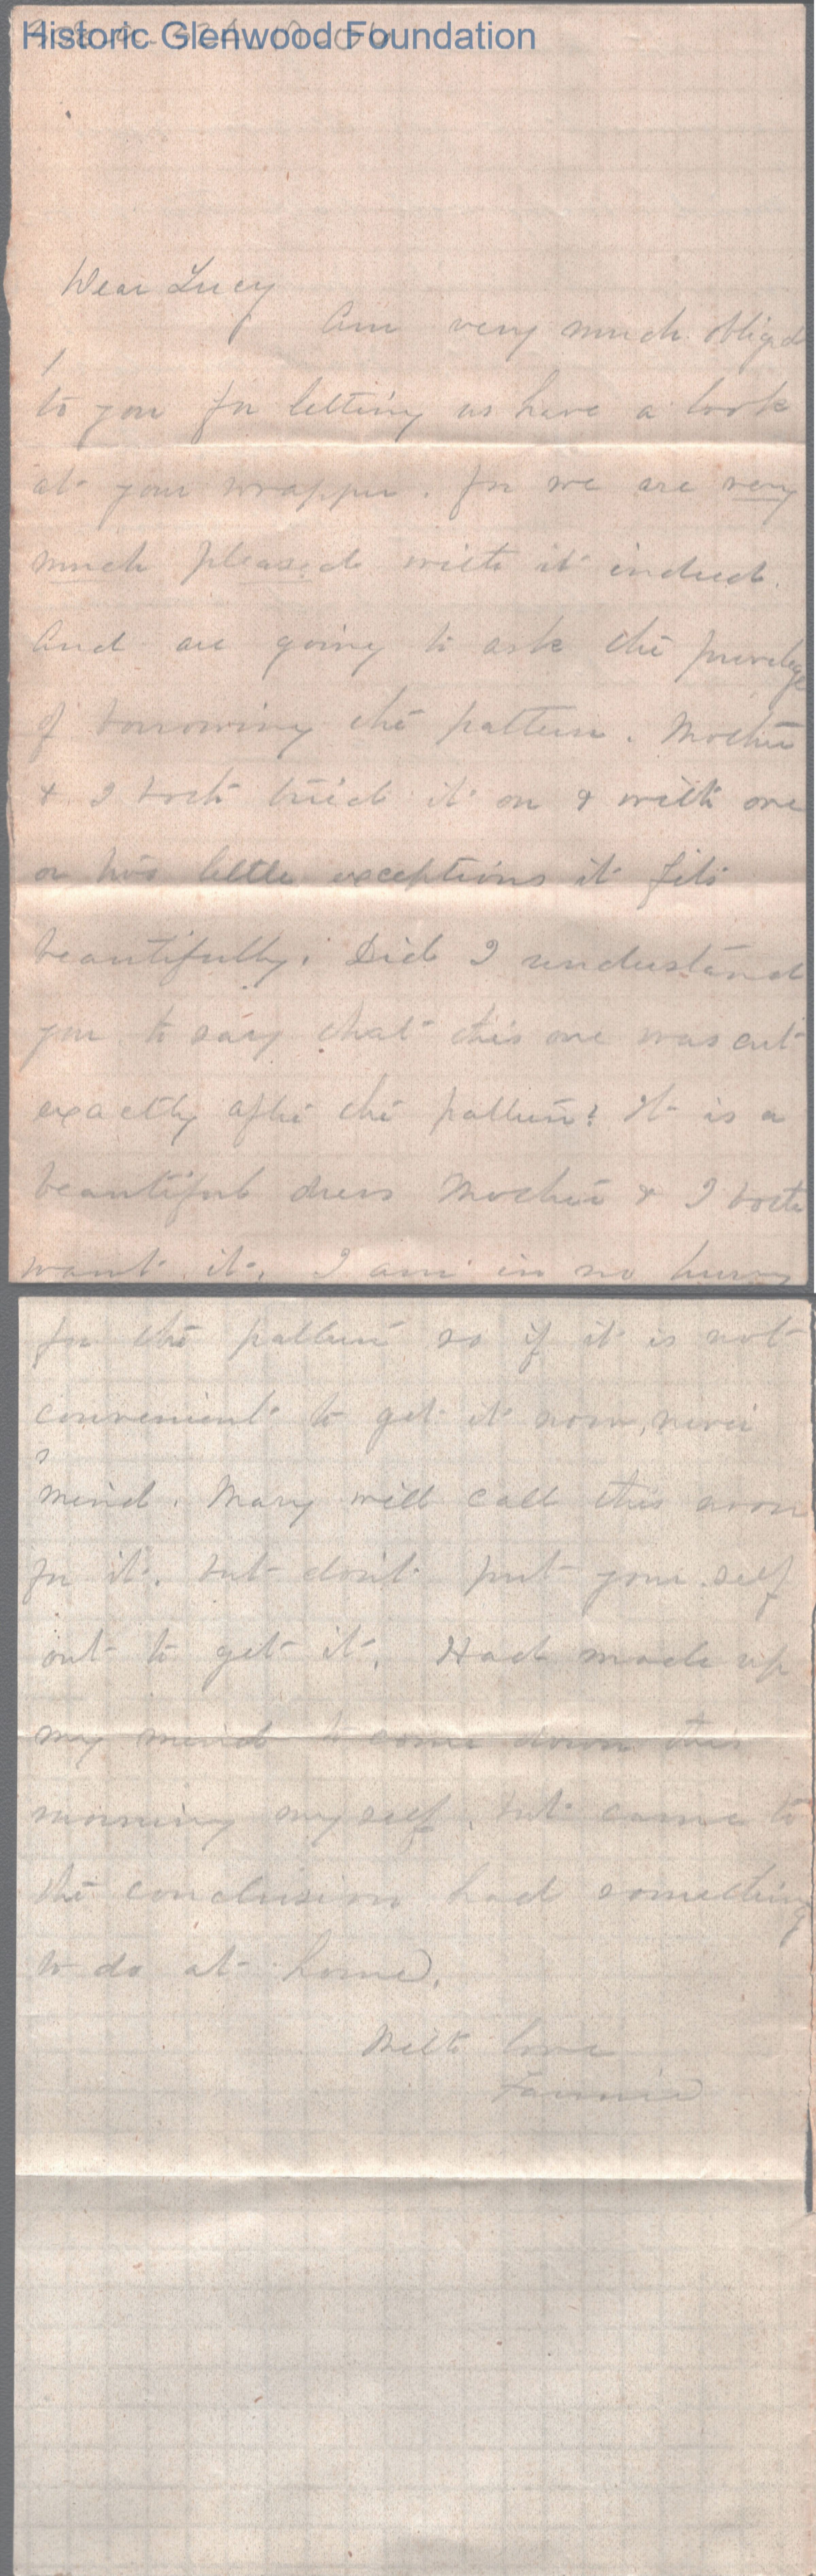 Historic Glenwood Foundation
Dear Lucy
Am very much obliged
to you for letting us have a look
at your wrapper. for we are very
much pleased with it indeed.
And are going to ask the privelege
of borrowing the pattern. Mother
& I both tried it on & with one
or two little exceptions it fits
beautifully. Did I understand
you to say that this one was cut
exactly after the pattern? It is a
beautiful dress Mother & I both
want it. I am in no hurry
for the pattern so if it is not
convenient to get it now, never
mind. Mary will call this noon
for it. but don't put your self
out to get it. Had made up
my mind to come down this
morning myself, but came to
the conclusion had something
to do at home.
With love
Fannie